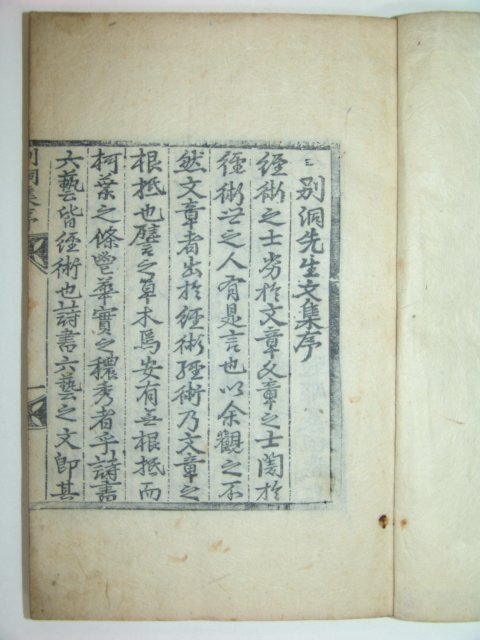 別洞先生文集序
經術之士劣於文章文章之士闇於
經術世之人有是言也以余觀之不
然文章者出於經術經術乃文章之
根柢也譬之草木焉安有無根柢而
柯葉之條鬯華實之穠秀者乎詩書
六藝皆經術也詩書六藝之文即其
別洞集序
一